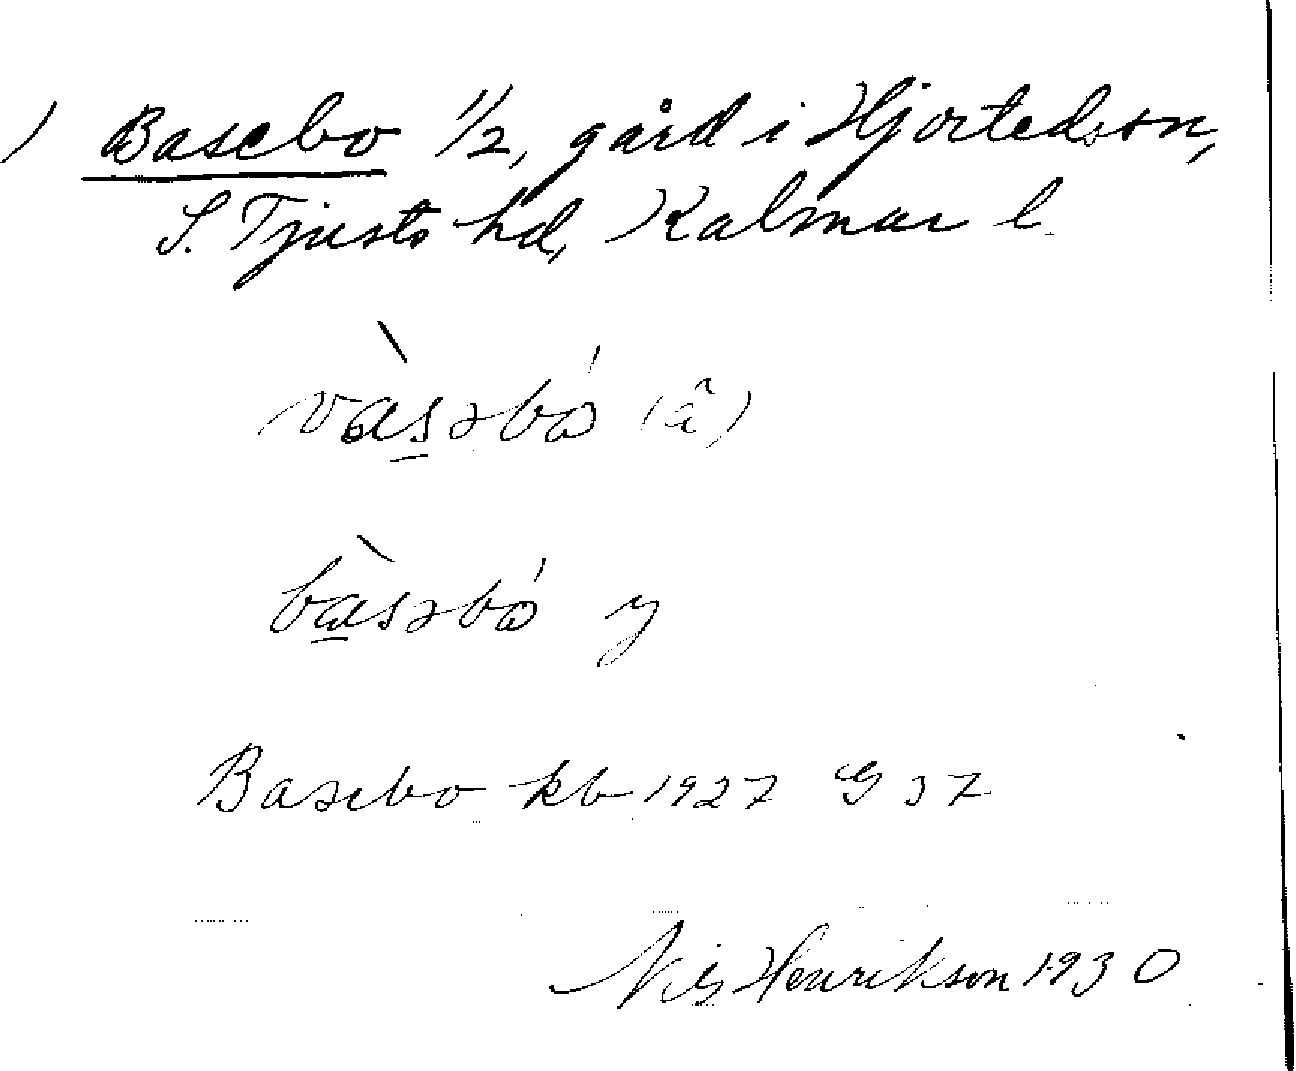 Basebo 1/2, gård i Hjorteds sn,
S. Tjusts hd, Kalmar l.
vàsəbó (ä)
bàsəbó y
Basebo kb 1927 G 37
Nils Henrikson 1930